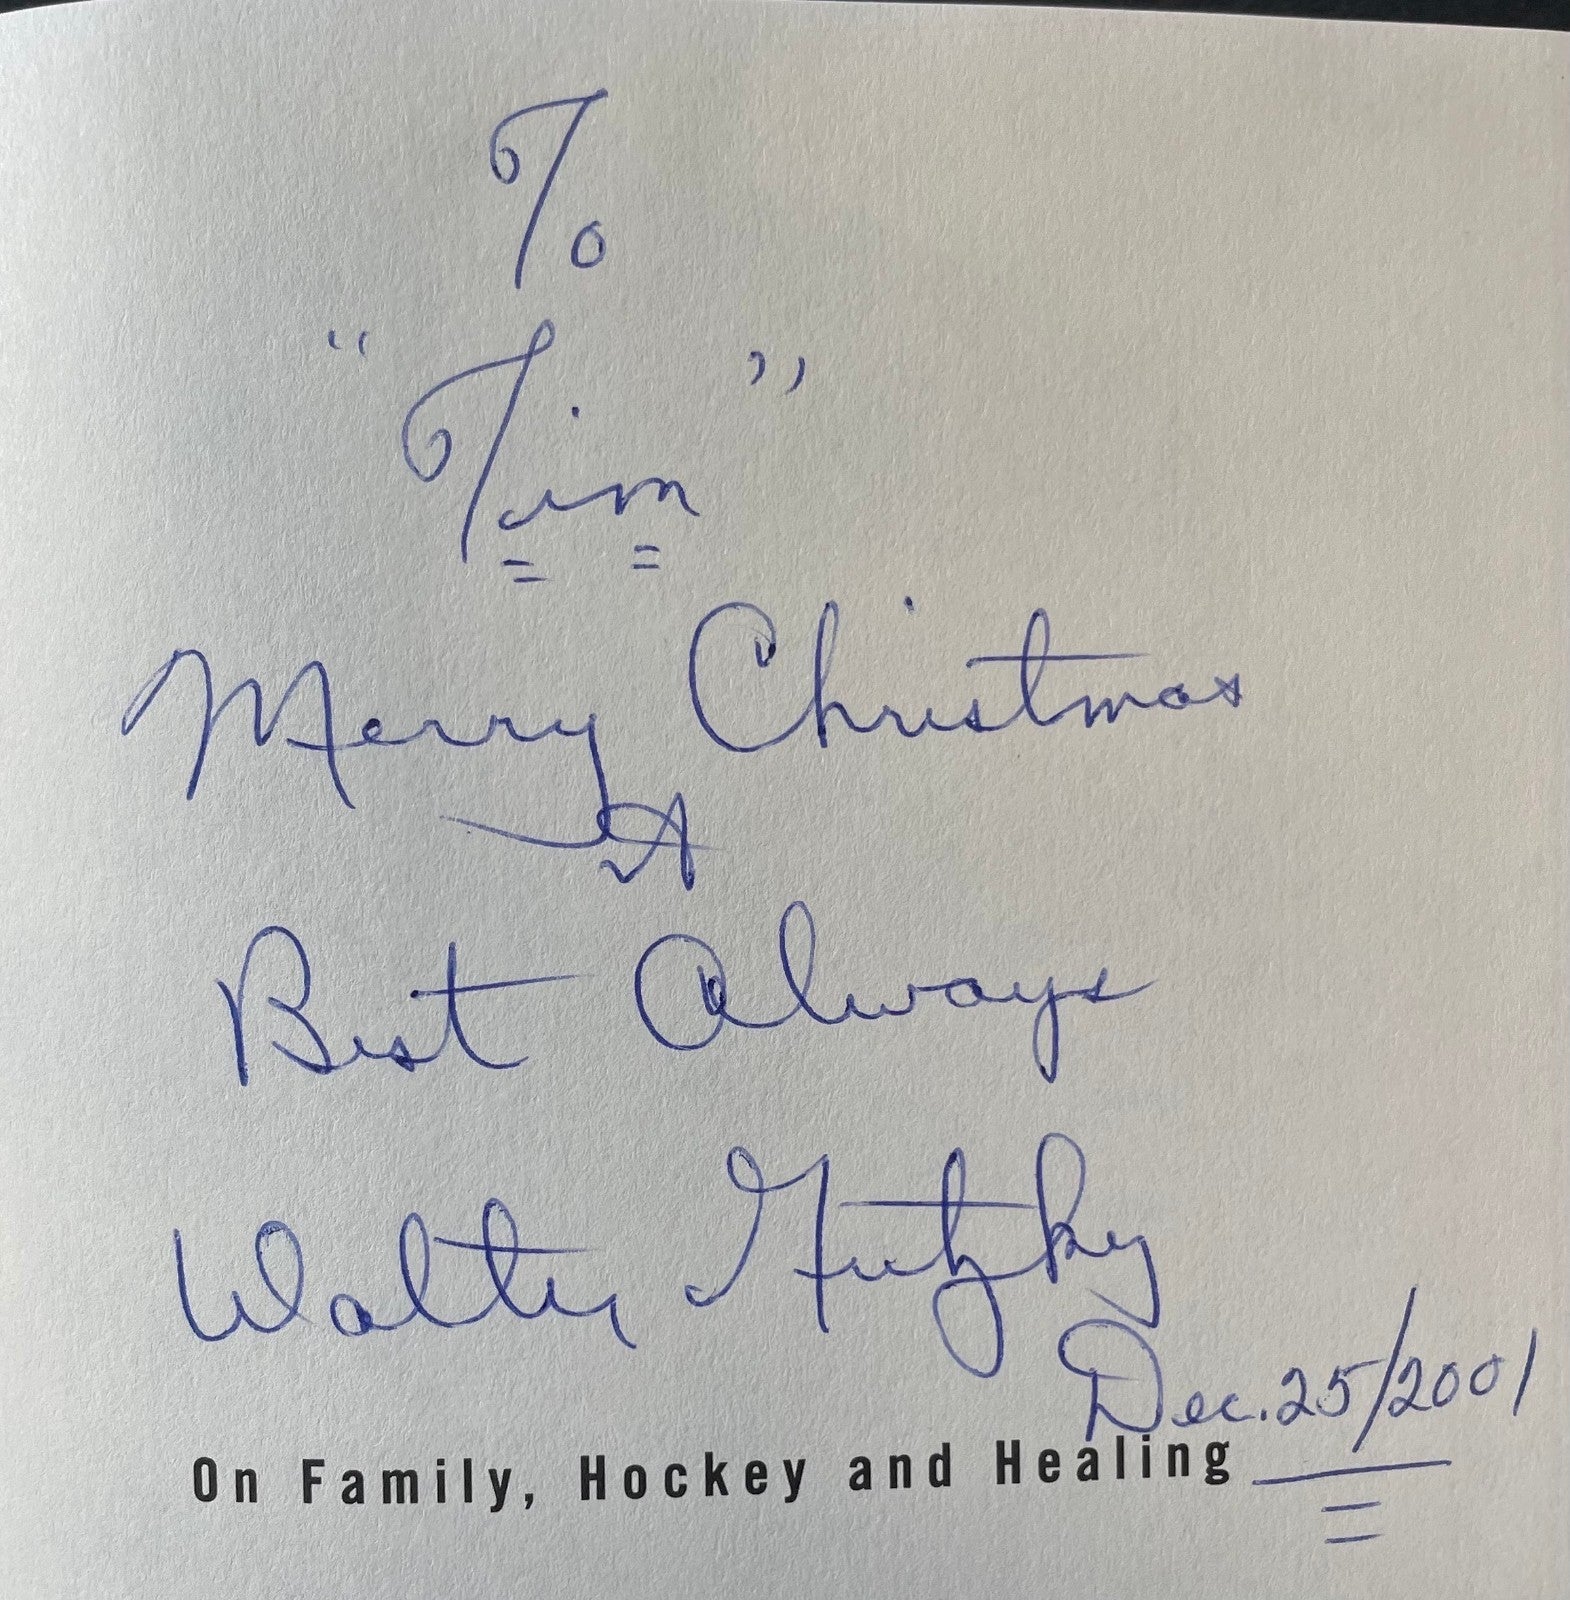 To
"Tim"
Merry Christmas
&
Best Always
Walter Gretzky
Dec. 25/2001
On Family, Hockey and Healing